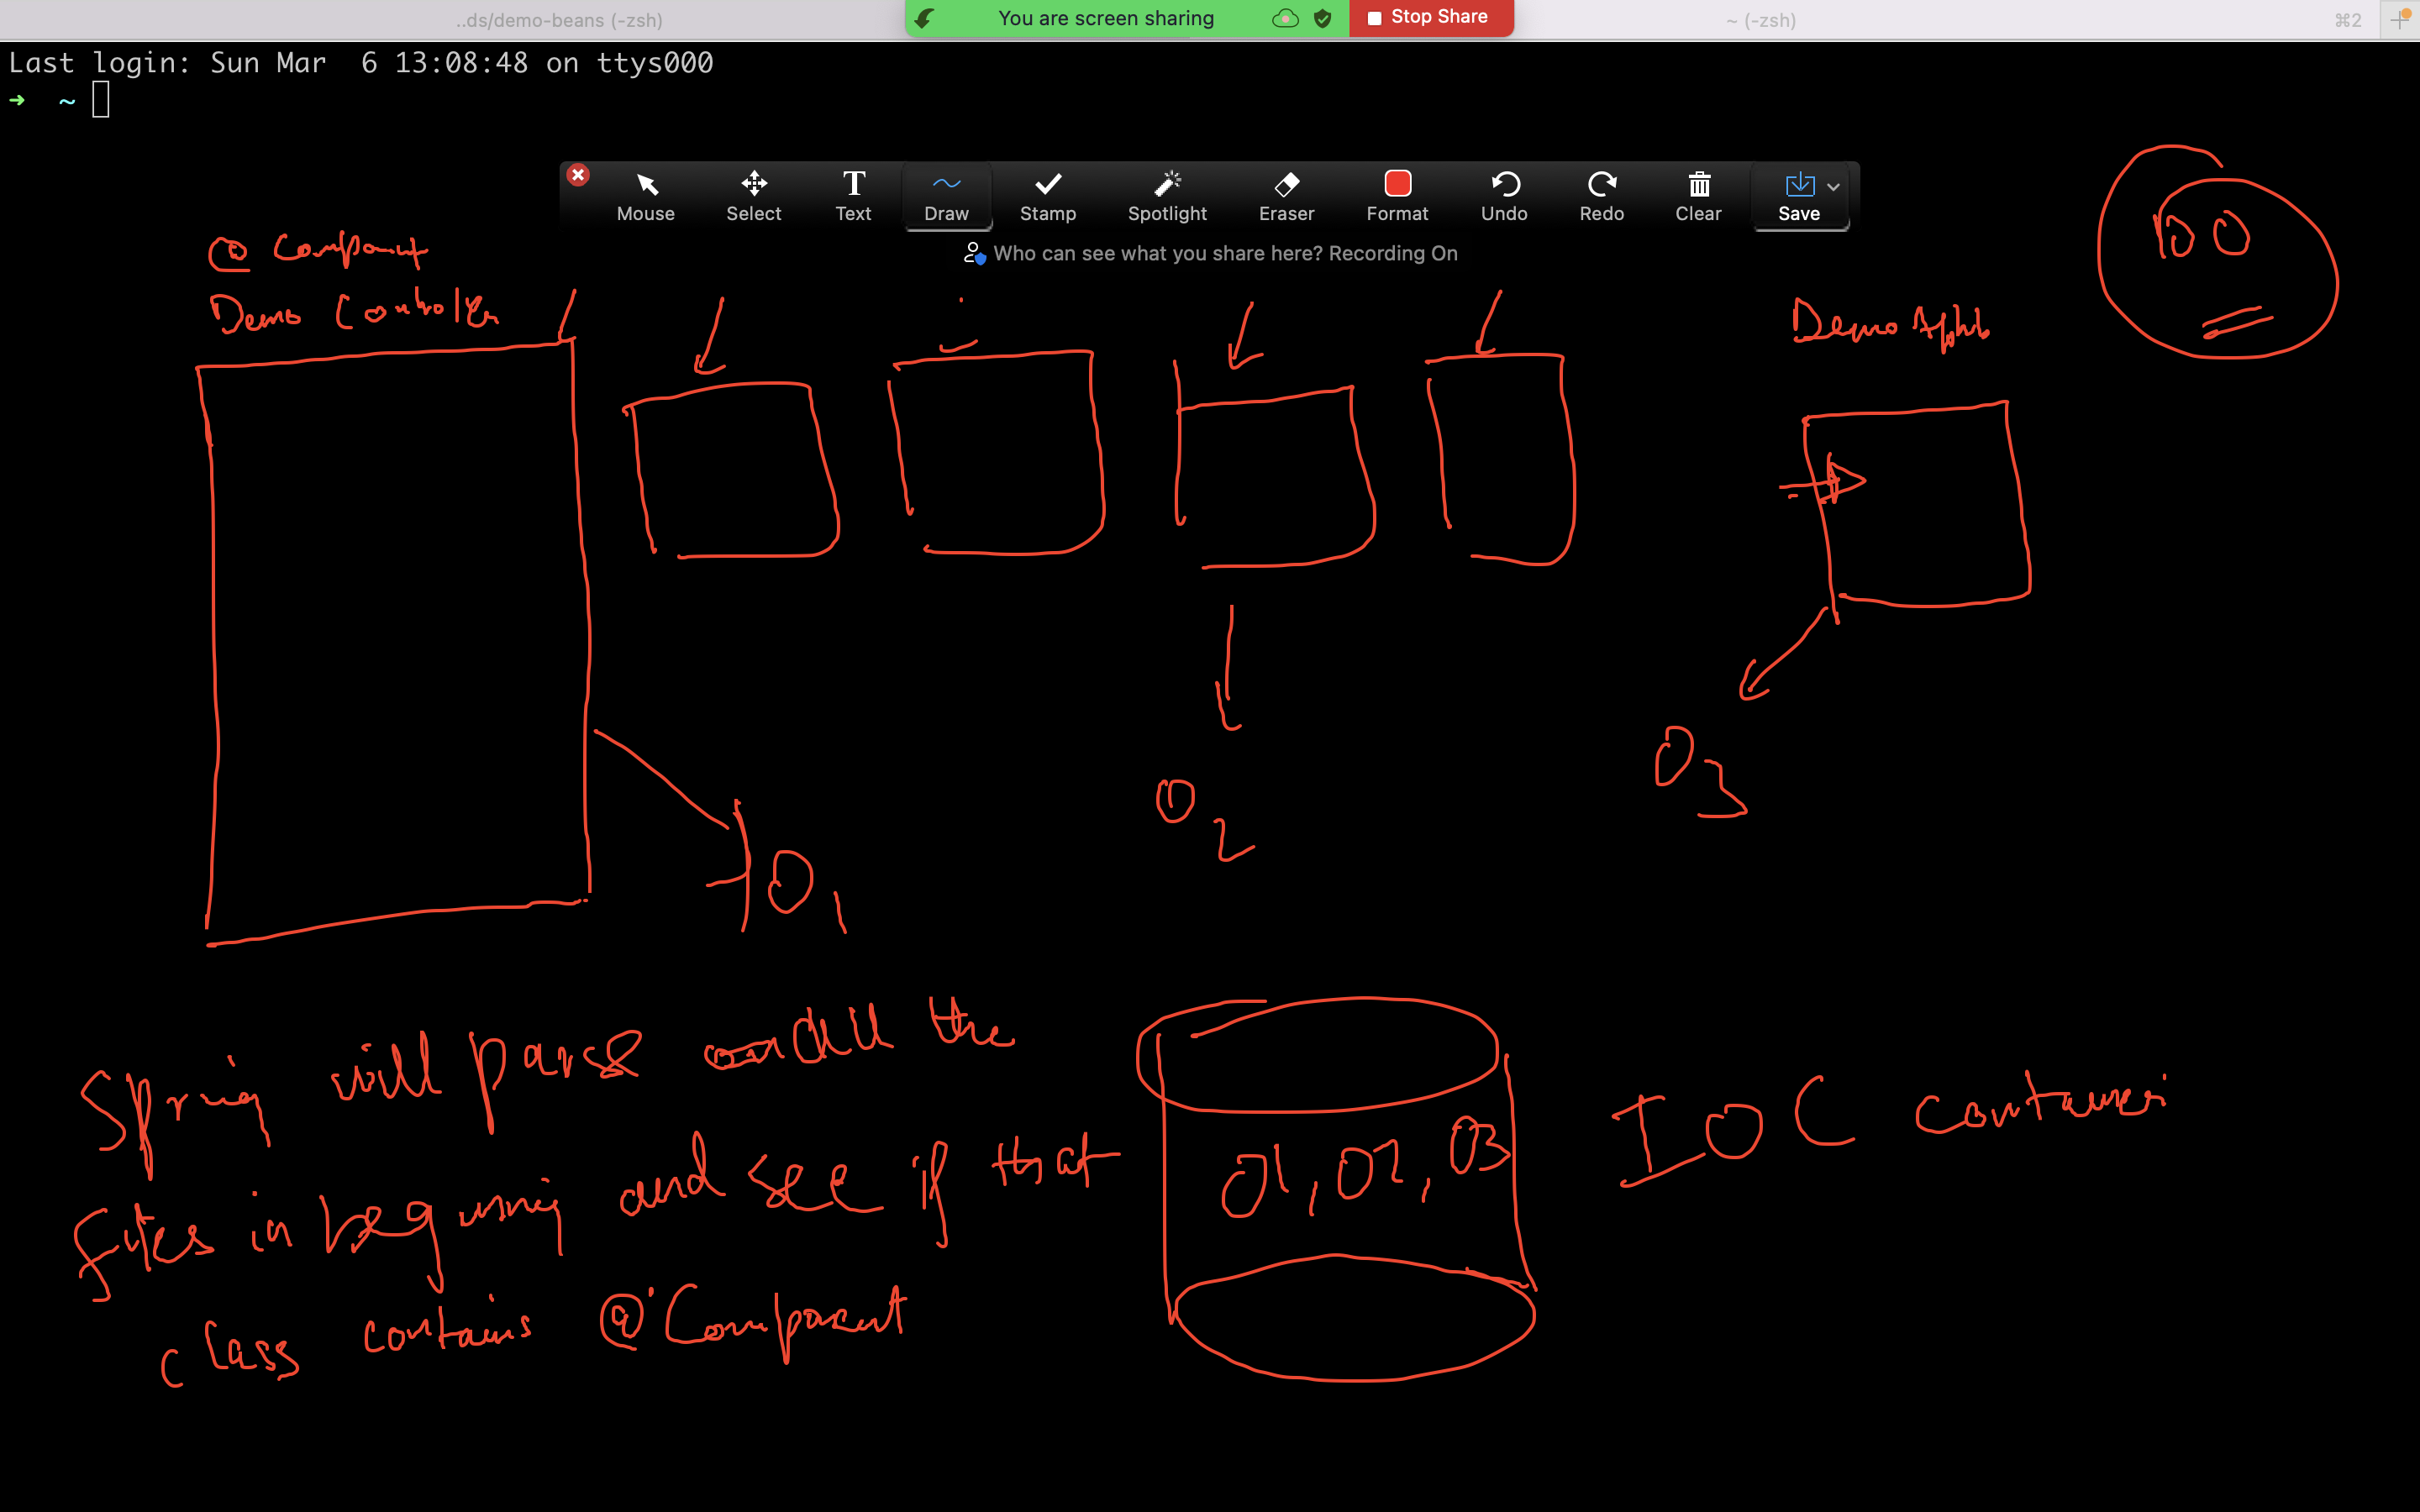 ..ds/demo-beans (-zsh)
You are screen sharing
Stop Share
~ (-zsh)
⌘2
Last login: Sun Mar  6 13:08:48 on ttys000
➜  ~
Mouse
Select
Text
Draw
Stamp
Spotlight
Eraser
Format
Undo
Redo
Clear
Save
Who can see what you share here? Recording On
@ Component
Demo Controller
Demo
100
O1
O2
O3
Spring will parse all the
files in beginning and see if that
class contains @Component
O1, O2, O3
IOC container